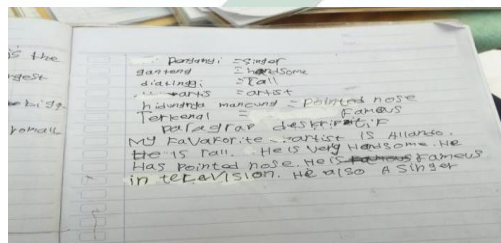 is the
penyanyi = singer
ganteng = handsome
diatinggi = Tall
artis = artist
hidungnya mancung = Pointed nose
Terkenal = Famous
paragraf deskriptif
My FaVaForite artist IS Aliando.
He is Tall. He is Very Handsome. He
Has Pointed nose. He is Famous Famous
in teLeVISION. He also A Singer